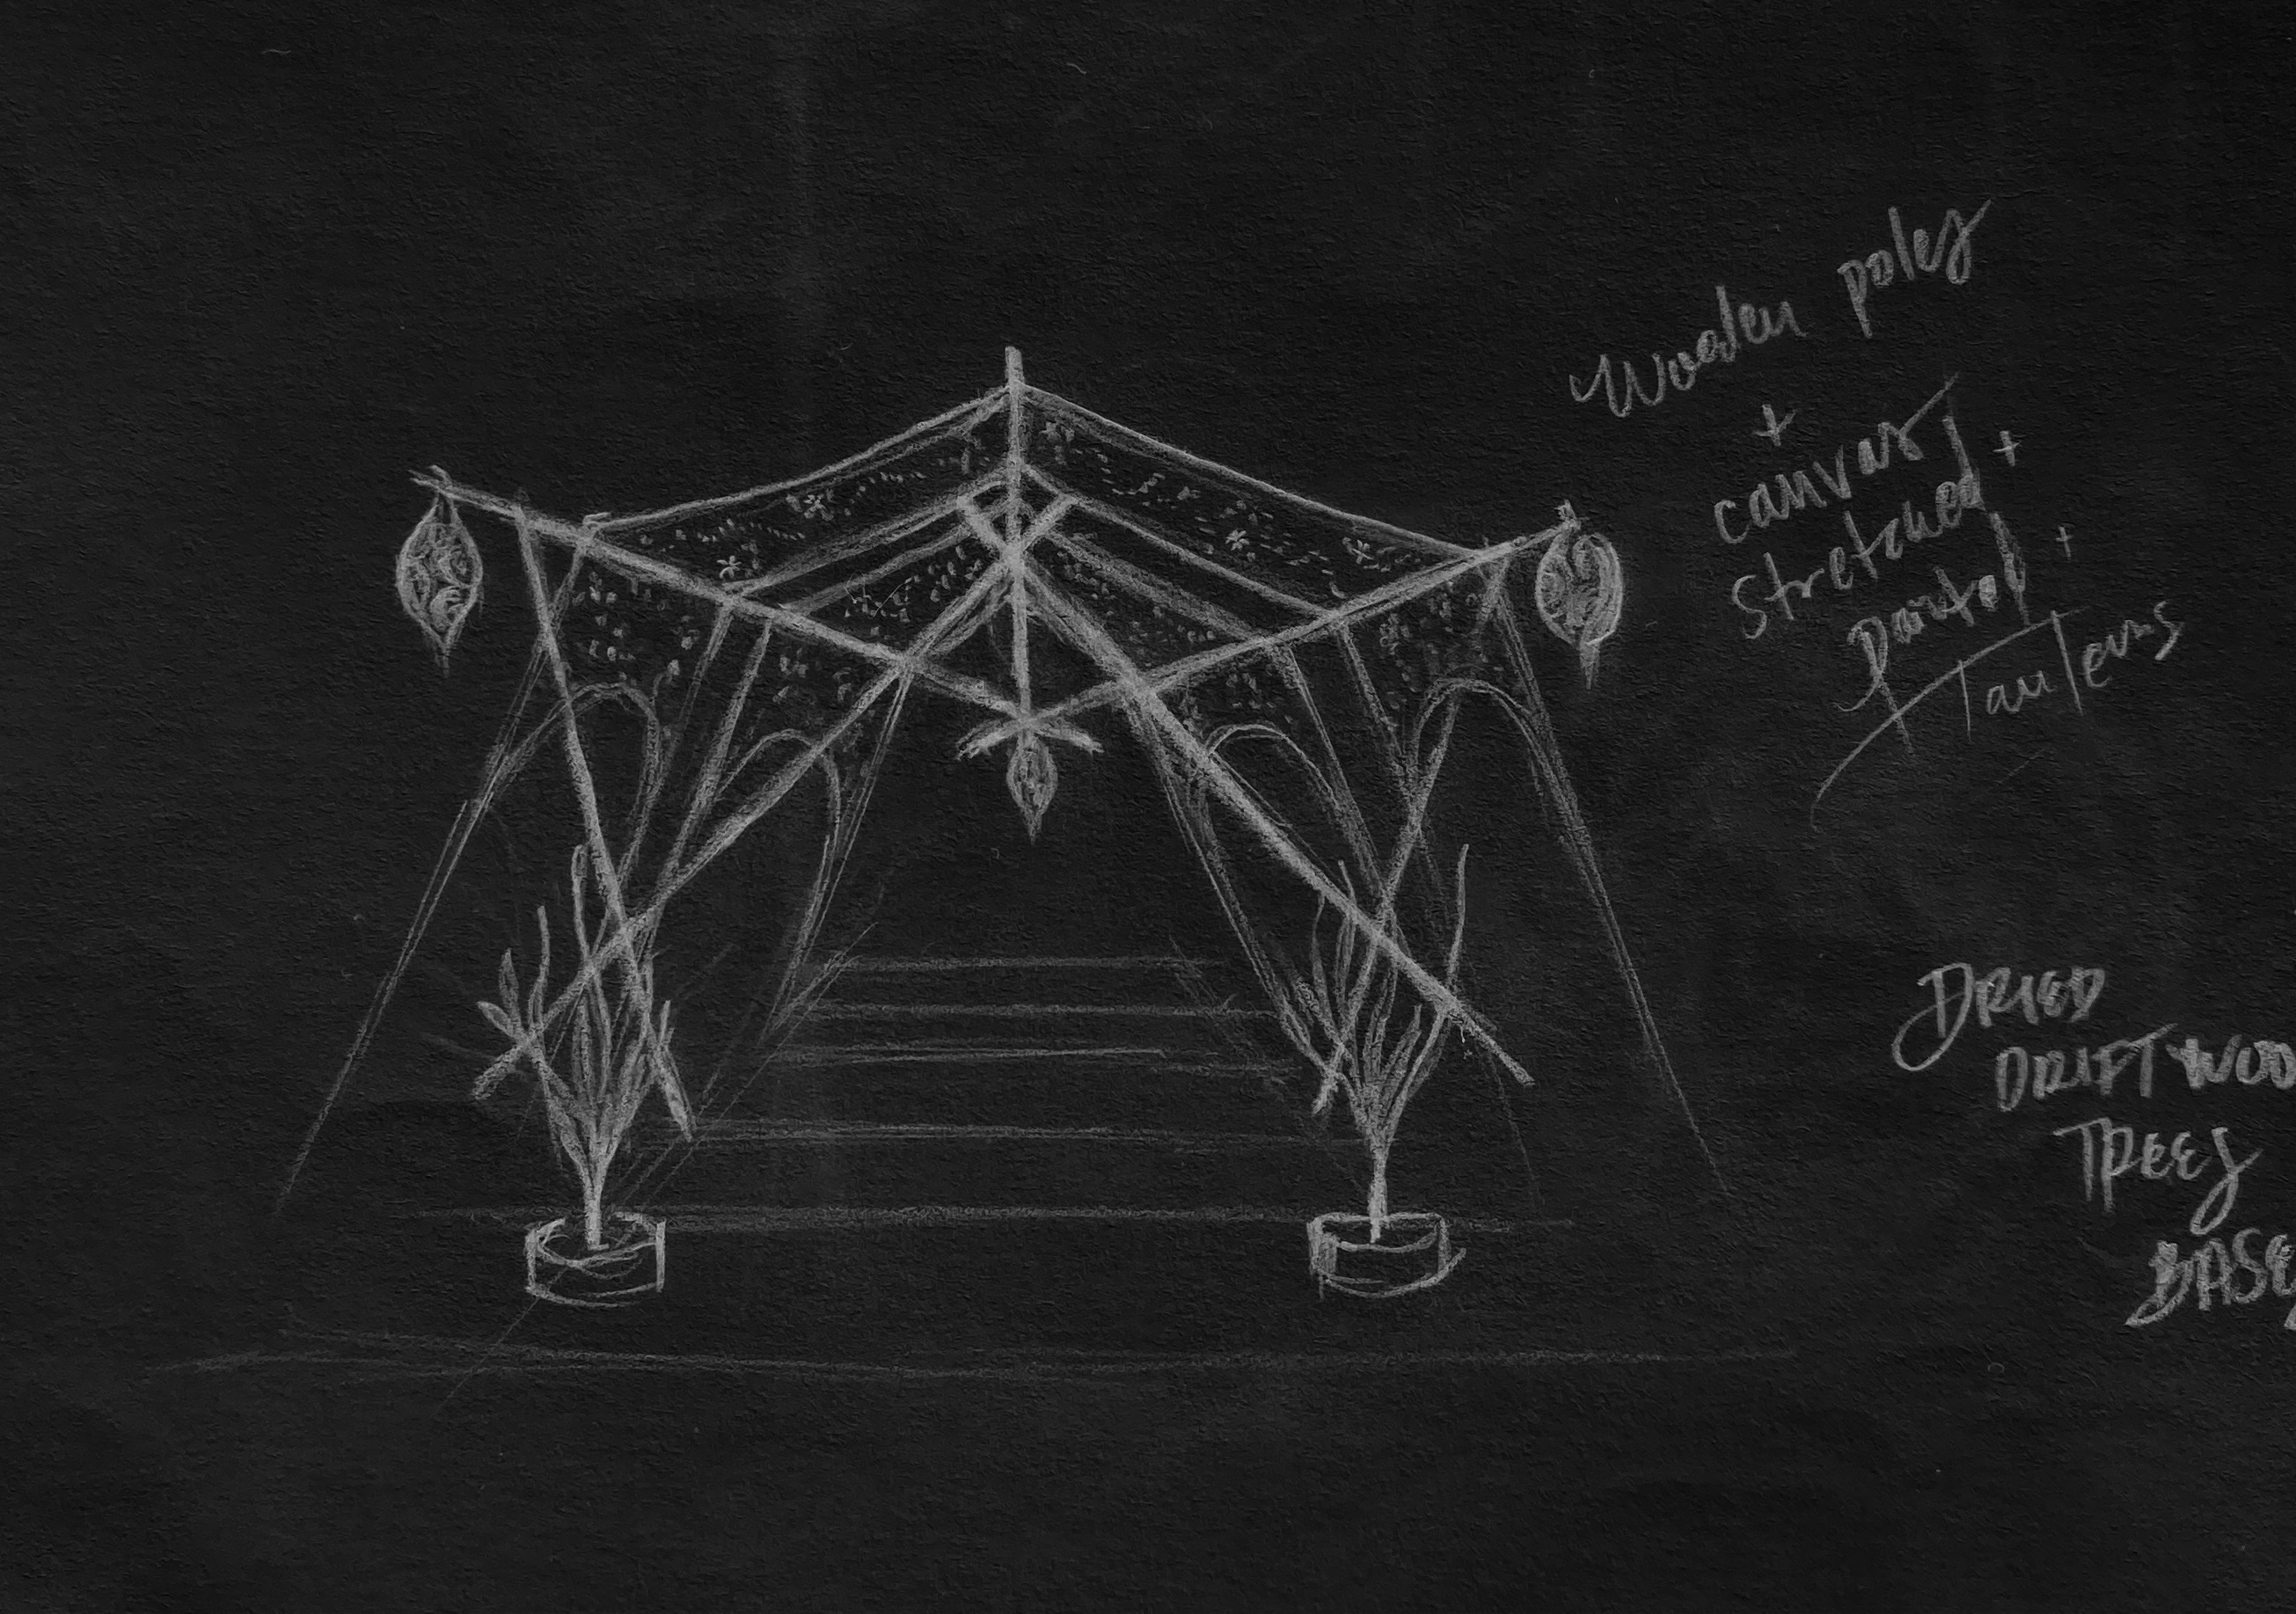 Wooden poles
+
canvas
stretched +
painted +
Lanterns
DRIED
DRIFTWOO
TREES
BASE